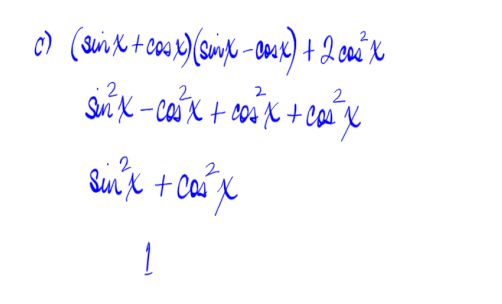 c) (sinx + cosx)(sinx - cosx) + 2cos²x
sin²x - cos²x + cos²x + cos²x
sin²x + cos²x
1